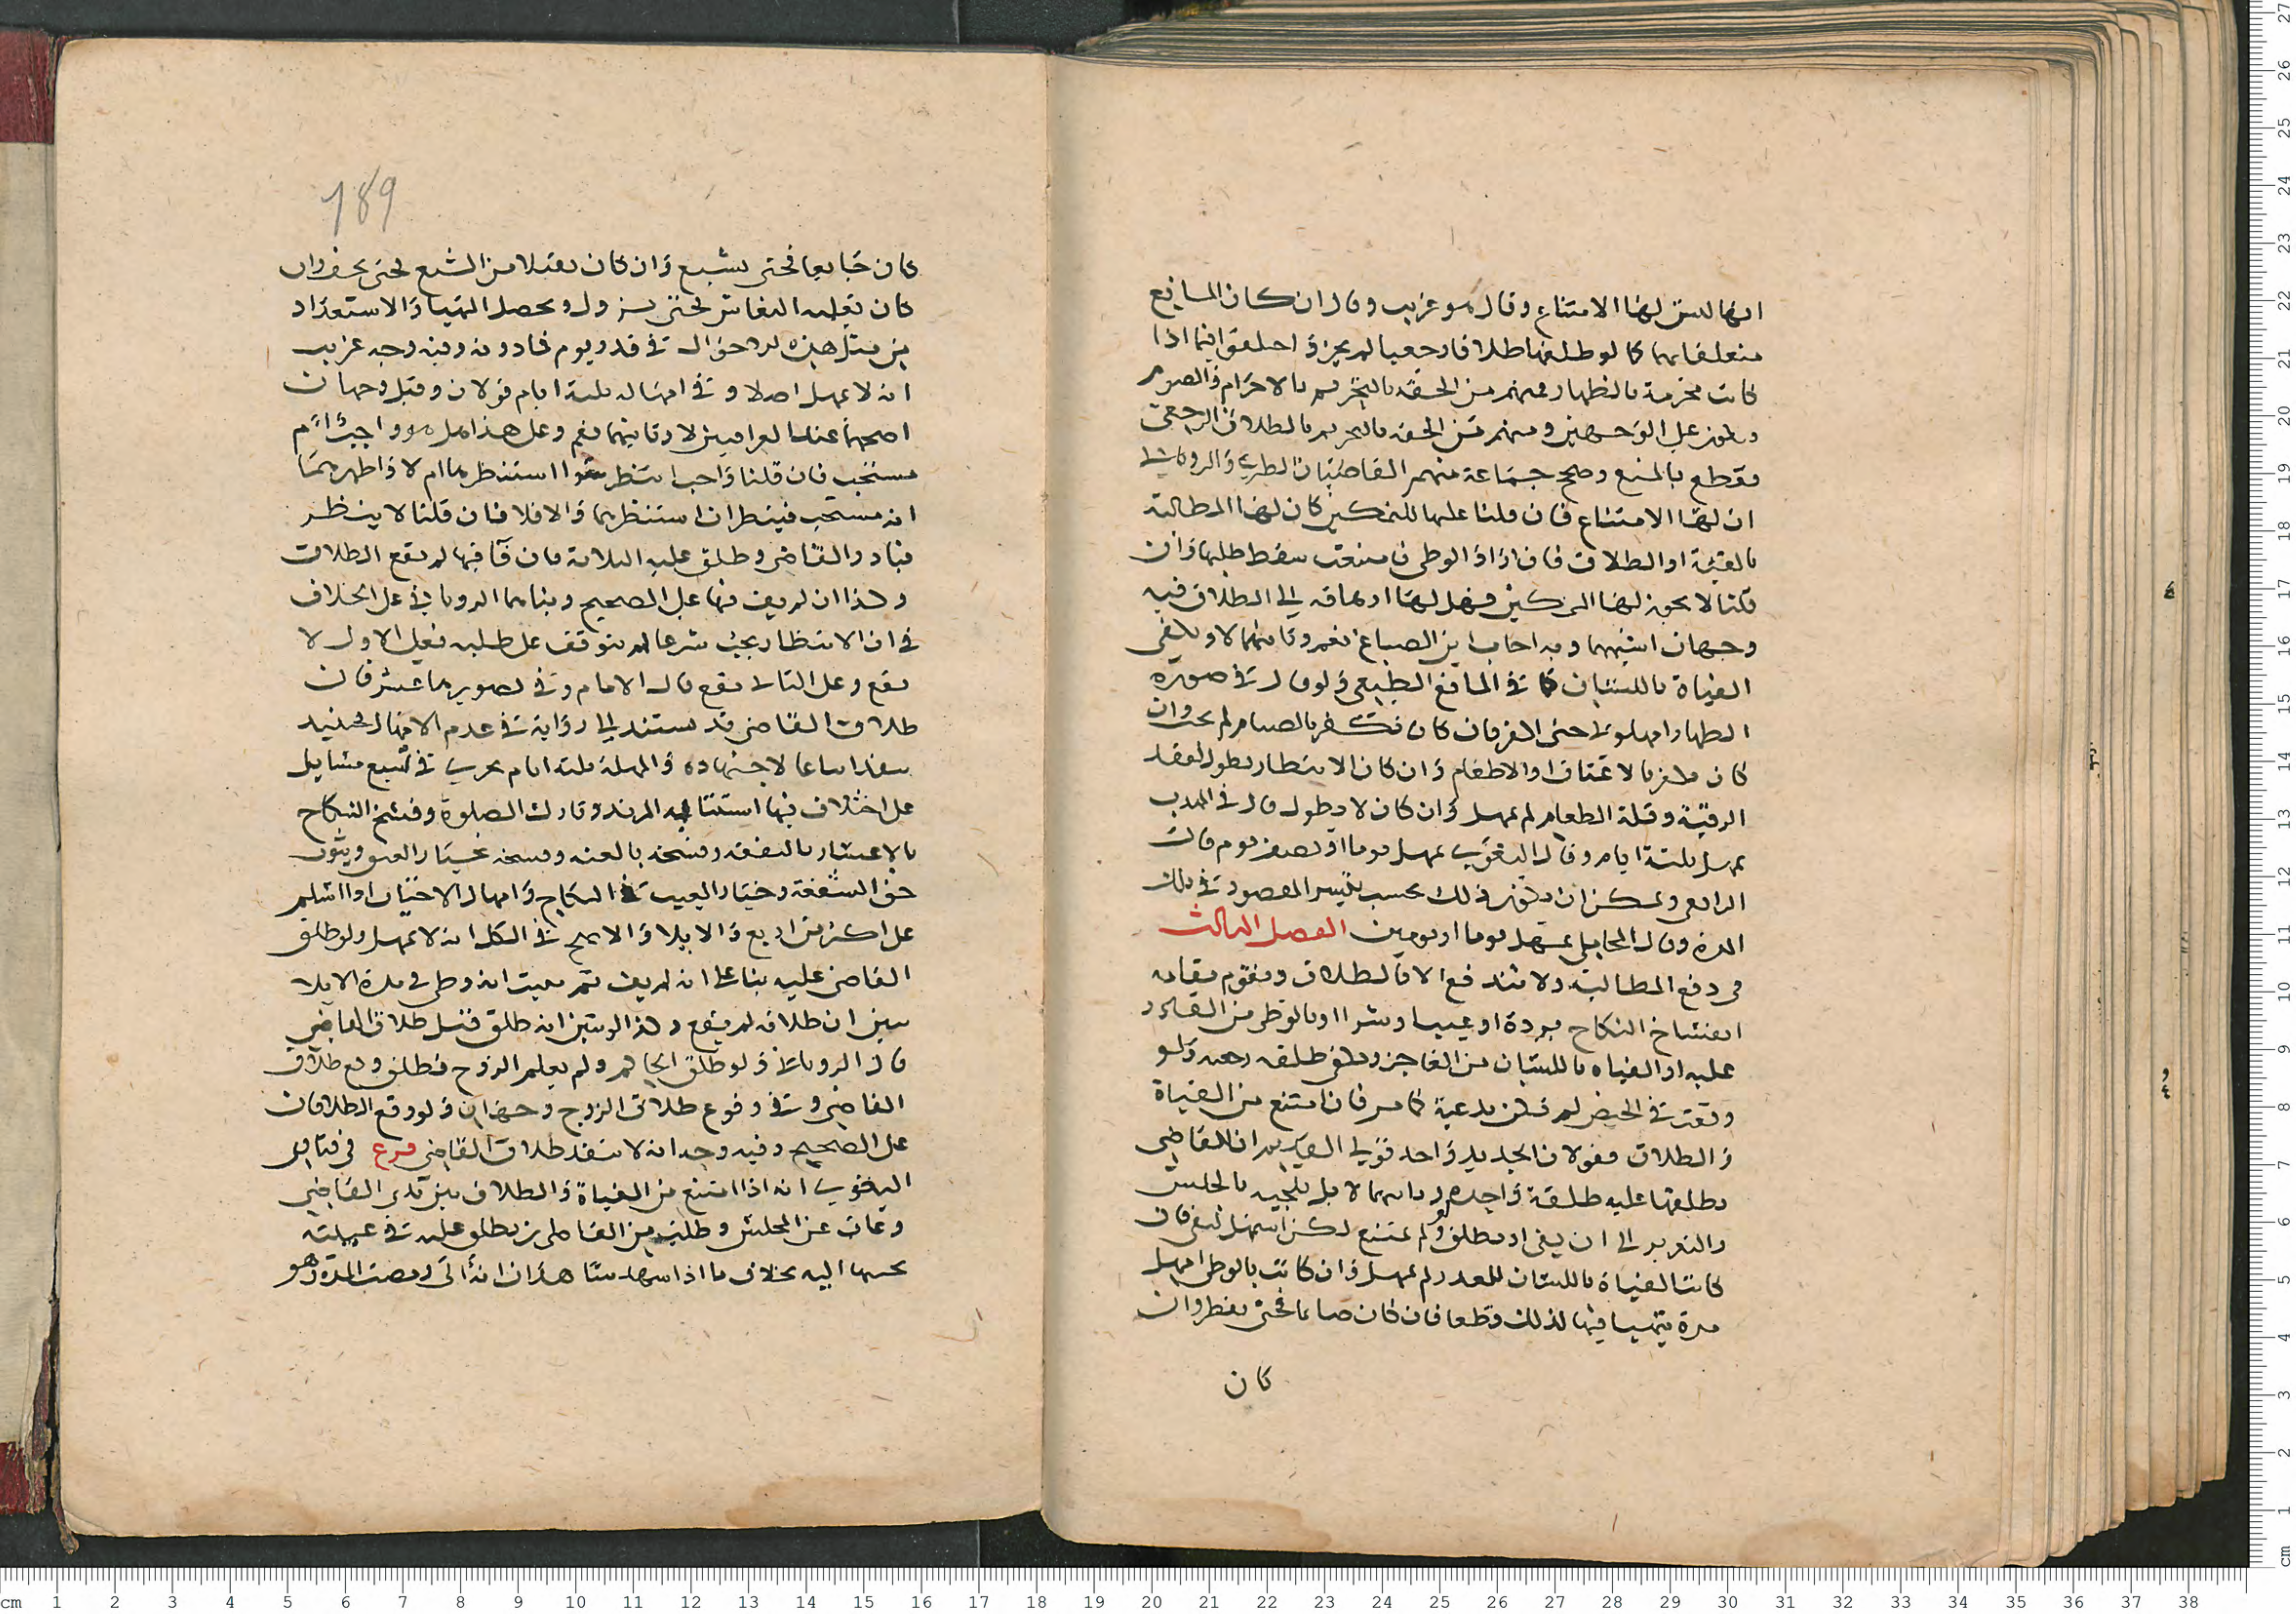 انها ليس لها الامتناع وقال هو غريب وقال ان كان المانع
متعلقا بهما كما لو طلقها طلاقا رجعيا لم يجز واختلفوا فيما اذا
كانت محرمة بالظهار فمنهم من الحقه بالتحريم بالاحرام والصوم
ويكون على الوجهين ومنهم من الحقه بالتحريم بالطلاق الرجعي
فقطع بالمنع وصحح جماعة منهم القاضيان الطبري والروياني
ان لها الامتناع فان قلنا عليها التمكين كان لها المطالبة
بالفيئة او الطلاق فان اراد الوطى فامتنعت سقط طلبها وان
قلنا لا يجوز لها التمكين فهل لها ارهاقه الى الطلاق فيه
وجهان اشبههما وبه اجاب ابن الصباغ نعم وثانيهما لا ويكفي
الفياة باللسان كما في المانع الطبيعي ولو قال في صورة
الظهار امهلوني حتى اكفر فان كان تكفر بالصيام لم يجز وان
كان يكفر بالاعتاق او الاطعام وان كان الانتظار يطول لفقد
الرقبة وقلة الطعام لم يمهل وان كان لا يطول قال في المهذب
يمهل ثلثة ايام وقال البغوي يمهل يوما او نصف يوم قال
الرافعي ويمكن ان يكون ذلك بحسب تيسر المقصود في تلك
المدة وقال المحاملي يمهل يوما او يومين الفصل الثالث
في دفع المطالبة ولا تندفع الا بالطلاق ويقوم مقامه
انفساخ النكاح بردة او عيب او شرا او بالوطى من القادر
عليه او الفياة باللسان من العاجز ويكفي طلقة رجعية ولو
وقعت في الحيض لم تكن بدعية كما مر فان امتنع من الفياة
والطلاق فقولان الجديد واحد قولي القديم ان القاضي
يطلقها عليه طلقة واحدة وثانيهما لا بل يلجيه بالحبس
والتعزير الى ان يفي او يطلق ولو لم يمتنع لكن استمهل ليفي فان
كانت الفياة باللسان للعذر لم يمهل وان كانت بالوطى امهل
مدة يتهيا فيها لذلك قطعا فان كان صايما فحتى يفطر وان
كان
189
كان جايعا فحتى يشبع وان كان مثقلا من الشبع فحتى يخف وان
كان يغلبه النعاس فحتى يزول ويحصل التهيا والاستعداد
من مثل هذه الاحوال في قدر يوم فما دونه وفيه وجه غريب
انه لا يمهل اصلا وفي امهاله ثلثة ايام قولان وقيل وجهان
اصحهما عند العراقيين لا وثانيهما نعم وعلى هذا هل هو واجب ام
مستحب فان قلنا واجب استنظر سوا استنظرها ام لا واظهرهما
انه مستحب فينظر ان استنظرها والا فلا فان قلنا لا ينظر
فبادر القاضي وطلق عليه الثلاثة فان فا فيها لم يقع الطلاق
وكذا ان لم يف فيها على الصحيح وبناهما الروياني على الخلاف
في ان الانتظار يجب شرعا ام يتوقف على طلبه فعلى الاول لا
يقع وعلى الثاني يقع قال الامام وفي تصويرها عسر فان
طلاق القاضي قد يستند الى رؤاية في عدم الامهال فحينيذ
ينفذ اتباعا لاجتهاده والمهلة ثلثة ايام يجري في تسع مسايل
على اختلاف فيها استتابة المرتد وتارك الصلوة وفسخ النكاح
بالاعسار بالنفقة وفسخه بالعنة وفسخه بخيار العتق وثبوت
حق الشفعة وخيار العيب في النكاح وامهال الاختيار اذا اسلم
على اكثر من اربع والايلا والاصح في الكل انه لا يمهل ولو طلق
القاضي عليه بنا على انه لم يف ثم ثبت انه وطى في مدة الايلا
تبين ان طلاقه لم يقع وكذا لو تبين انه طلق قبل طلاق القاضي
قال الروياني ولو طلق الحاكم ولم يعلم الزوج فطلق وقع طلاق
القاضي وفي وقوع طلاق الزوج وجهان ولو وقع الطلاقان
على الصحيح وفيه وجه انه لا ينفذ طلاق القاضي فرع في فتاوى
البغوي انه اذا امتنع من الفياة والطلاق بين يدي القاضي
وغاب عن المجلس وطلبت من القاضي ان يطلق عليه في غيبته
يجيبها اليه بخلاف ما اذا شهد شاهدان انه الى ومضت المدة وهو